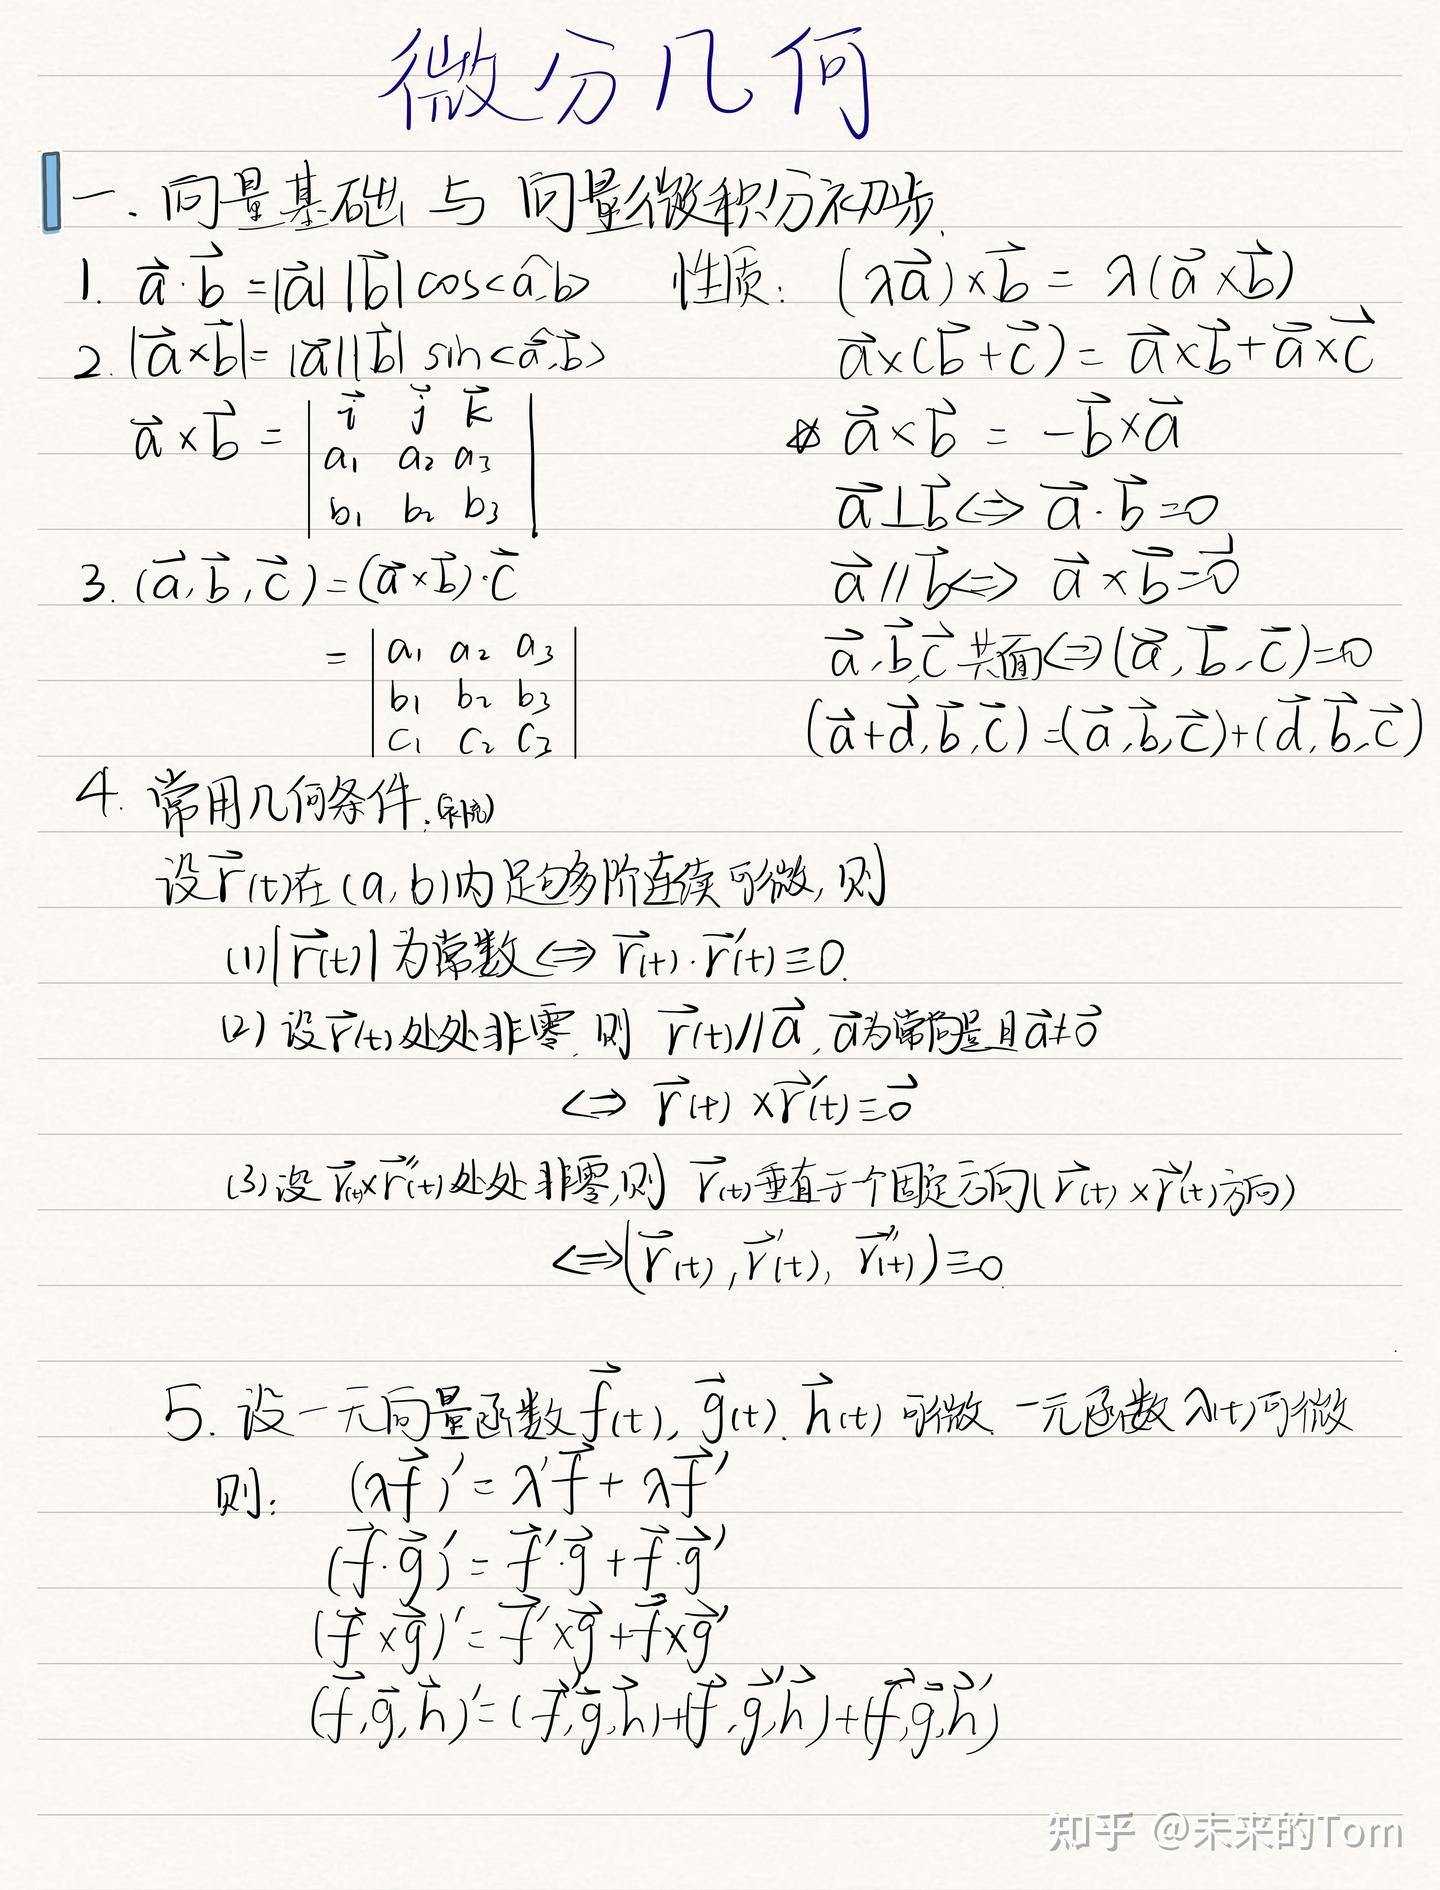 微分几何
一. 向量基础与向量微积分初步.
1. $\vec{a}\cdot\vec{b}=|\vec{a}||\vec{b}|\cos<\widehat{a,b}>$ 性质: $(\lambda\vec{a})\times\vec{b}=\lambda(\vec{a}\times\vec{b})$
2. $|\vec{a}\times\vec{b}|=|\vec{a}||\vec{b}|\sin<\widehat{\vec{a},\vec{b}}>$ $\vec{a}\times(\vec{b}+\vec{c})=\vec{a}\times\vec{b}+\vec{a}\times\vec{c}$
$\vec{a}\times\vec{b}=\begin{vmatrix}\vec{i}&\vec{j}&\vec{k}\\a_1&a_2&a_3\\b_1&b_2&b_3\end{vmatrix}$ $\vec{a}\times\vec{b}=-\vec{b}\times\vec{a}$
$\vec{a}\perp\vec{b}\Leftrightarrow\vec{a}\cdot\vec{b}=0$
3. $(\vec{a},\vec{b},\vec{c})=(\vec{a}\times\vec{b})\cdot\vec{c}$ $\vec{a}//\vec{b}\Leftrightarrow\vec{a}\times\vec{b}=\vec{0}$
$=\begin{vmatrix}a_1&a_2&a_3\\b_1&b_2&b_3\\c_1&c_2&c_3\end{vmatrix}$ $\vec{a},\vec{b},\vec{c}$ 共面 $\Leftrightarrow(\vec{a},\vec{b},\vec{c})=0$
$(\vec{a}+\vec{d},\vec{b},\vec{c})=(\vec{a},\vec{b},\vec{c})+(\vec{d},\vec{b},\vec{c})$
4. 常用几何条件.
设$\vec{r}(t)$在$(a,b)$内足够多阶连续可微, 则
(1) $|\vec{r}(t)|$ 为常数 $\Leftrightarrow\vec{r}(t)\cdot\vec{r}'(t)\equiv0$.
(2) 设$\vec{r}(t)$处处非零, 则 $\vec{r}(t)//\vec{a}$, $\vec{a}$为常向量且$\vec{a}\neq\vec{0}$
$\Leftrightarrow\vec{r}(t)\times\vec{r}'(t)\equiv\vec{0}$
(3) 设 $\vec{r}(t)\times\vec{r}''(t)$处处非零, 则 $\vec{r}(t)$垂直于个固定方向($\vec{r}(t)\times\vec{r}'(t)$方向)
$\Leftrightarrow(\vec{r}(t),\vec{r}'(t),\vec{r}''(t))\equiv0$
5. 设一元向量函数$\vec{f}(t),\vec{g}(t),\vec{h}(t)$可微, 一元函数$\lambda(t)$可微
则: $(\lambda\vec{f})'=\lambda'\vec{f}+\lambda\vec{f}'$
$(\vec{f}\cdot\vec{g})'=\vec{f}'\cdot\vec{g}+\vec{f}\cdot\vec{g}'$
$(\vec{f}\times\vec{g})'=\vec{f}'\times\vec{g}+\vec{f}\times\vec{g}'$
$(\vec{f},\vec{g},\vec{h})'=(\vec{f}',\vec{g},\vec{h})+(\vec{f},\vec{g}',\vec{h})+(\vec{f},\vec{g},\vec{h}')$
知乎 @未来的Tom